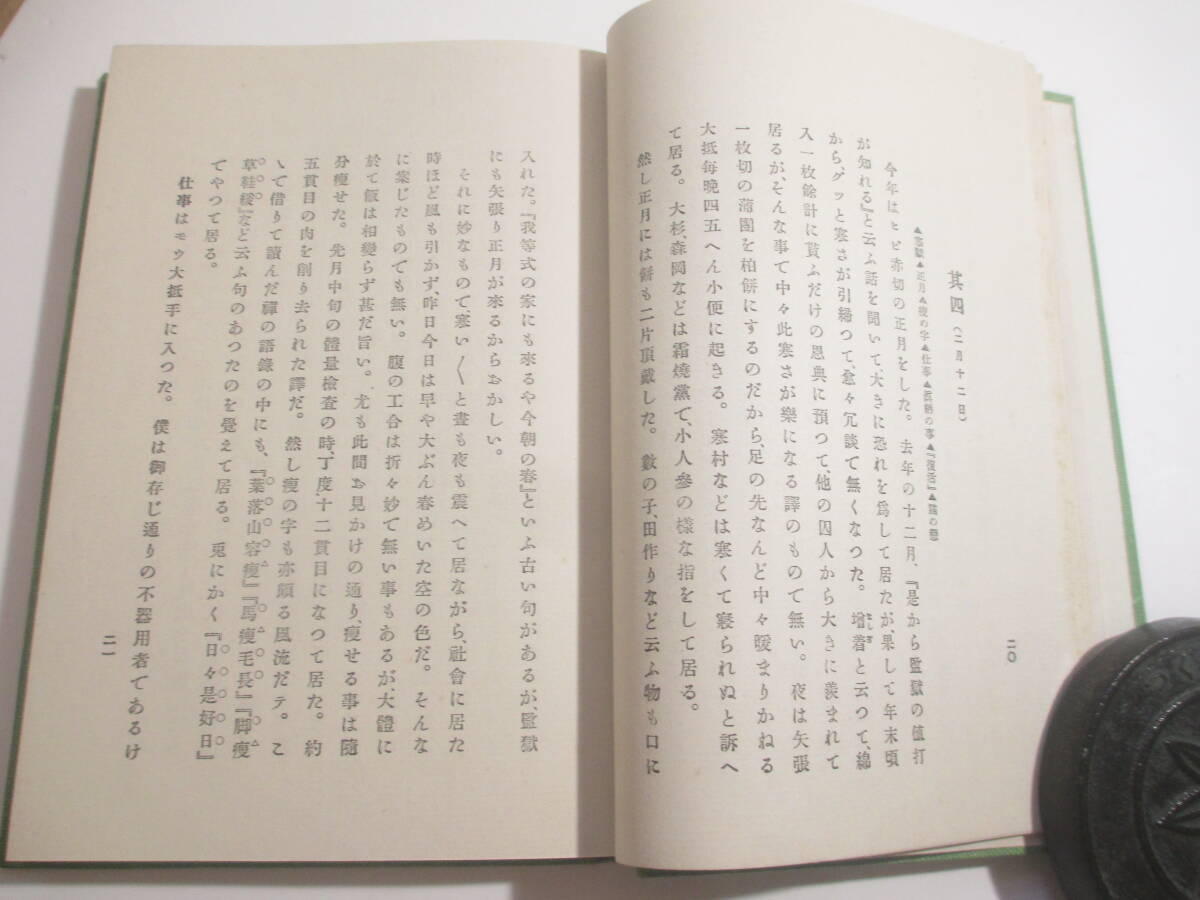 其四（二月十二日）
▲寒獄▲正月▲瘦の字▲仕事▲眞柄の事▲『復活』▲猫の戀
今年はヒビ赤切の正月をした。去年の十二月、『是から監獄の値打
が知れる』と云ふ話を聞いて、大きに恐れを爲して居たが、果して年末頃
から、グッと寒さが引締つて、愈々冗談で無くなつた。增着と云つて、綿
入一枚餘計に貰ふだけの恩典に預つて、他の囚人から大きに羨まれて
居るが、そんな事で中々此寒さが樂になる譯のもので無い。夜は矢張
一枚切の蒲團を柏餅にするのだから、足の先なんど中々暖まりかねる
大抵每晩四五へん小便に起きる。寒村などは寒くて寢られぬと訴へ
て居る。大杉、森岡などは霜燒黨で、小人參の樣な指をして居る。
然し正月には餅も二片頂戴した。數の子、田作りなど云ふ物も口に
二〇
入れた。『我等式の家にも來るや今朝の春』といふ古い句があるが、監獄
にも矢張り正月が來るからおかしい。
それに妙なもので、寒い〱と晝も夜も震へて居ながら、社會に居た
時ほど風も引かず、昨日今日は早や大ぶん春めいた空の色だ。そんな
に案じたものでも無い。腹の工合は折々妙で無い事もあるが、大體に
於て飯は相變らず甚だ旨い。尤も此間お見かけの通り、瘦せる事は隨
分瘦せた。先月中旬の體量檢査の時、丁度、十二貫目になつて居た。約
五貫目の肉を削り去られた譯だ。然し瘦の字も亦頗る風流だテ。こ
ヽで借りて讀んだ禪の語錄の中にも、『葉落山容瘦』『馬瘦毛長』『脚瘦
草鞋緩』など云ふ句のあつたのを覺えて居る。兎にかく『日々是好日』
でやつて居る。
仕事はモウ大抵手に入つた。僕は御存じ通りの不器用者であるけ
二一